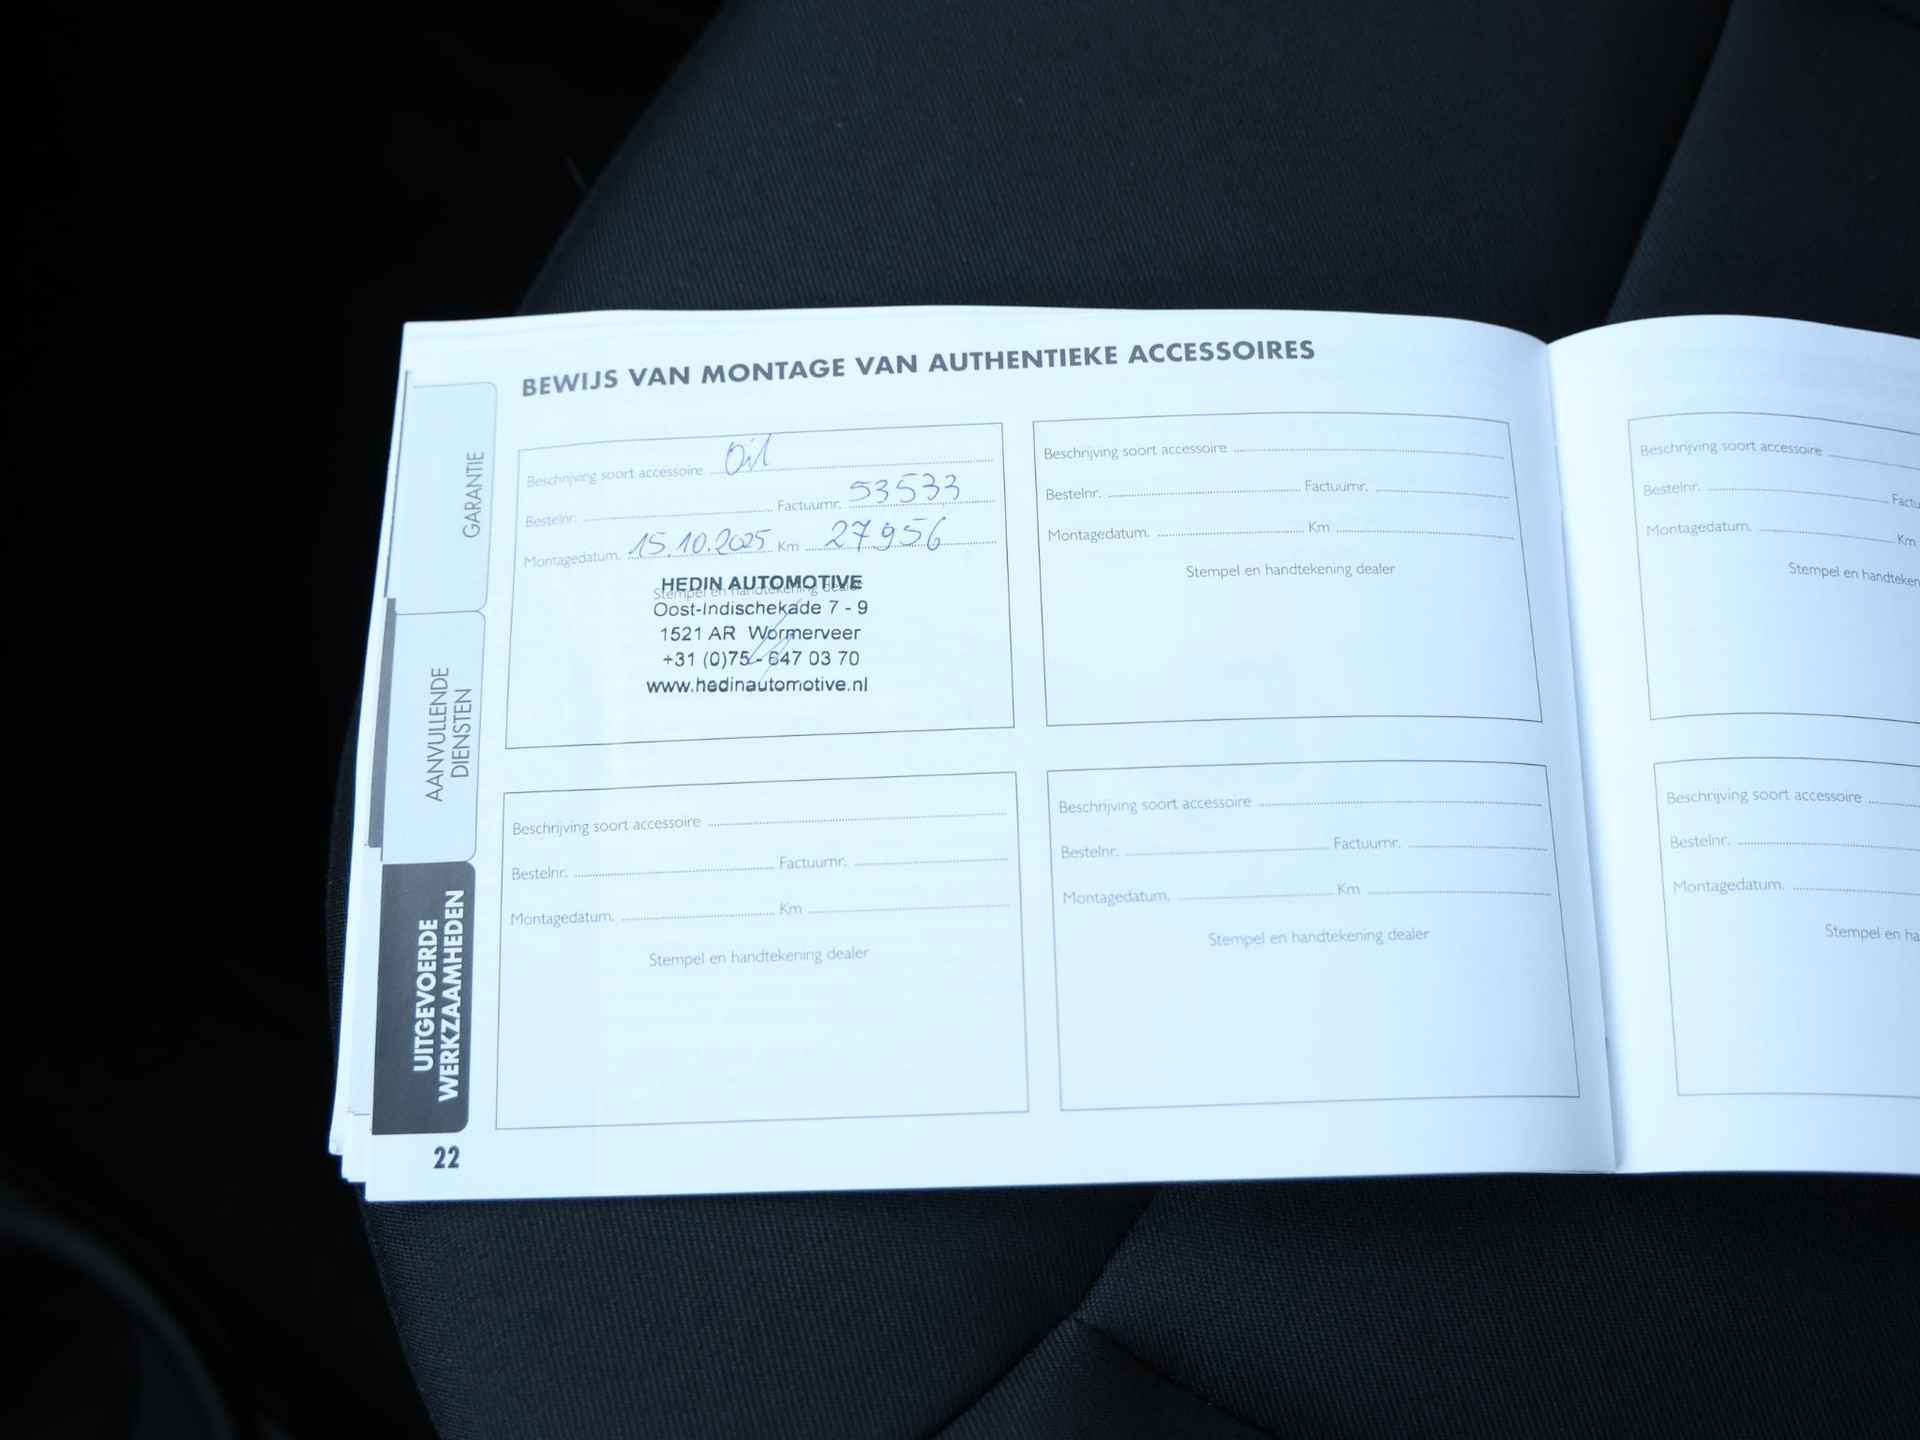 BEWIJS VAN MONTAGE VAN AUTHENTIEKE ACCESSOIRES
GARANTIE
AANVULLENDE
DIENSTEN
UITGEVOERDE
WERKZAAMHEDEN
22
Beschrijving soort accessoire Oil
Bestelnr. Factuurnr. 53533
Montagedatum. 15.10.2025 Km 27956
Stempel en handtekening dealer
HEDIN AUTOMOTIVE
Oost-Indischekade 7 - 9
1521 AR Wormerveer
+31 (0)75 - 647 03 70
www.hedinautomotive.nl
Beschrijving soort accessoire
Bestelnr. Factuurnr.
Montagedatum. Km
Stempel en handtekening dealer
Beschrijving soort accessoire
Bestelnr. Factuurnr.
Montagedatum. Km
Stempel en handtekening dealer
Beschrijving soort accessoire
Bestelnr. Factuurnr.
Montagedatum. Km
Stempel en handtekening dealer
Beschrijving soort accessoire
Bestelnr. Factu
Montagedatum. Km
Stempel en handteken
Beschrijving soort accessoire
Bestelnr.
Montagedatum.
Stempel en ha